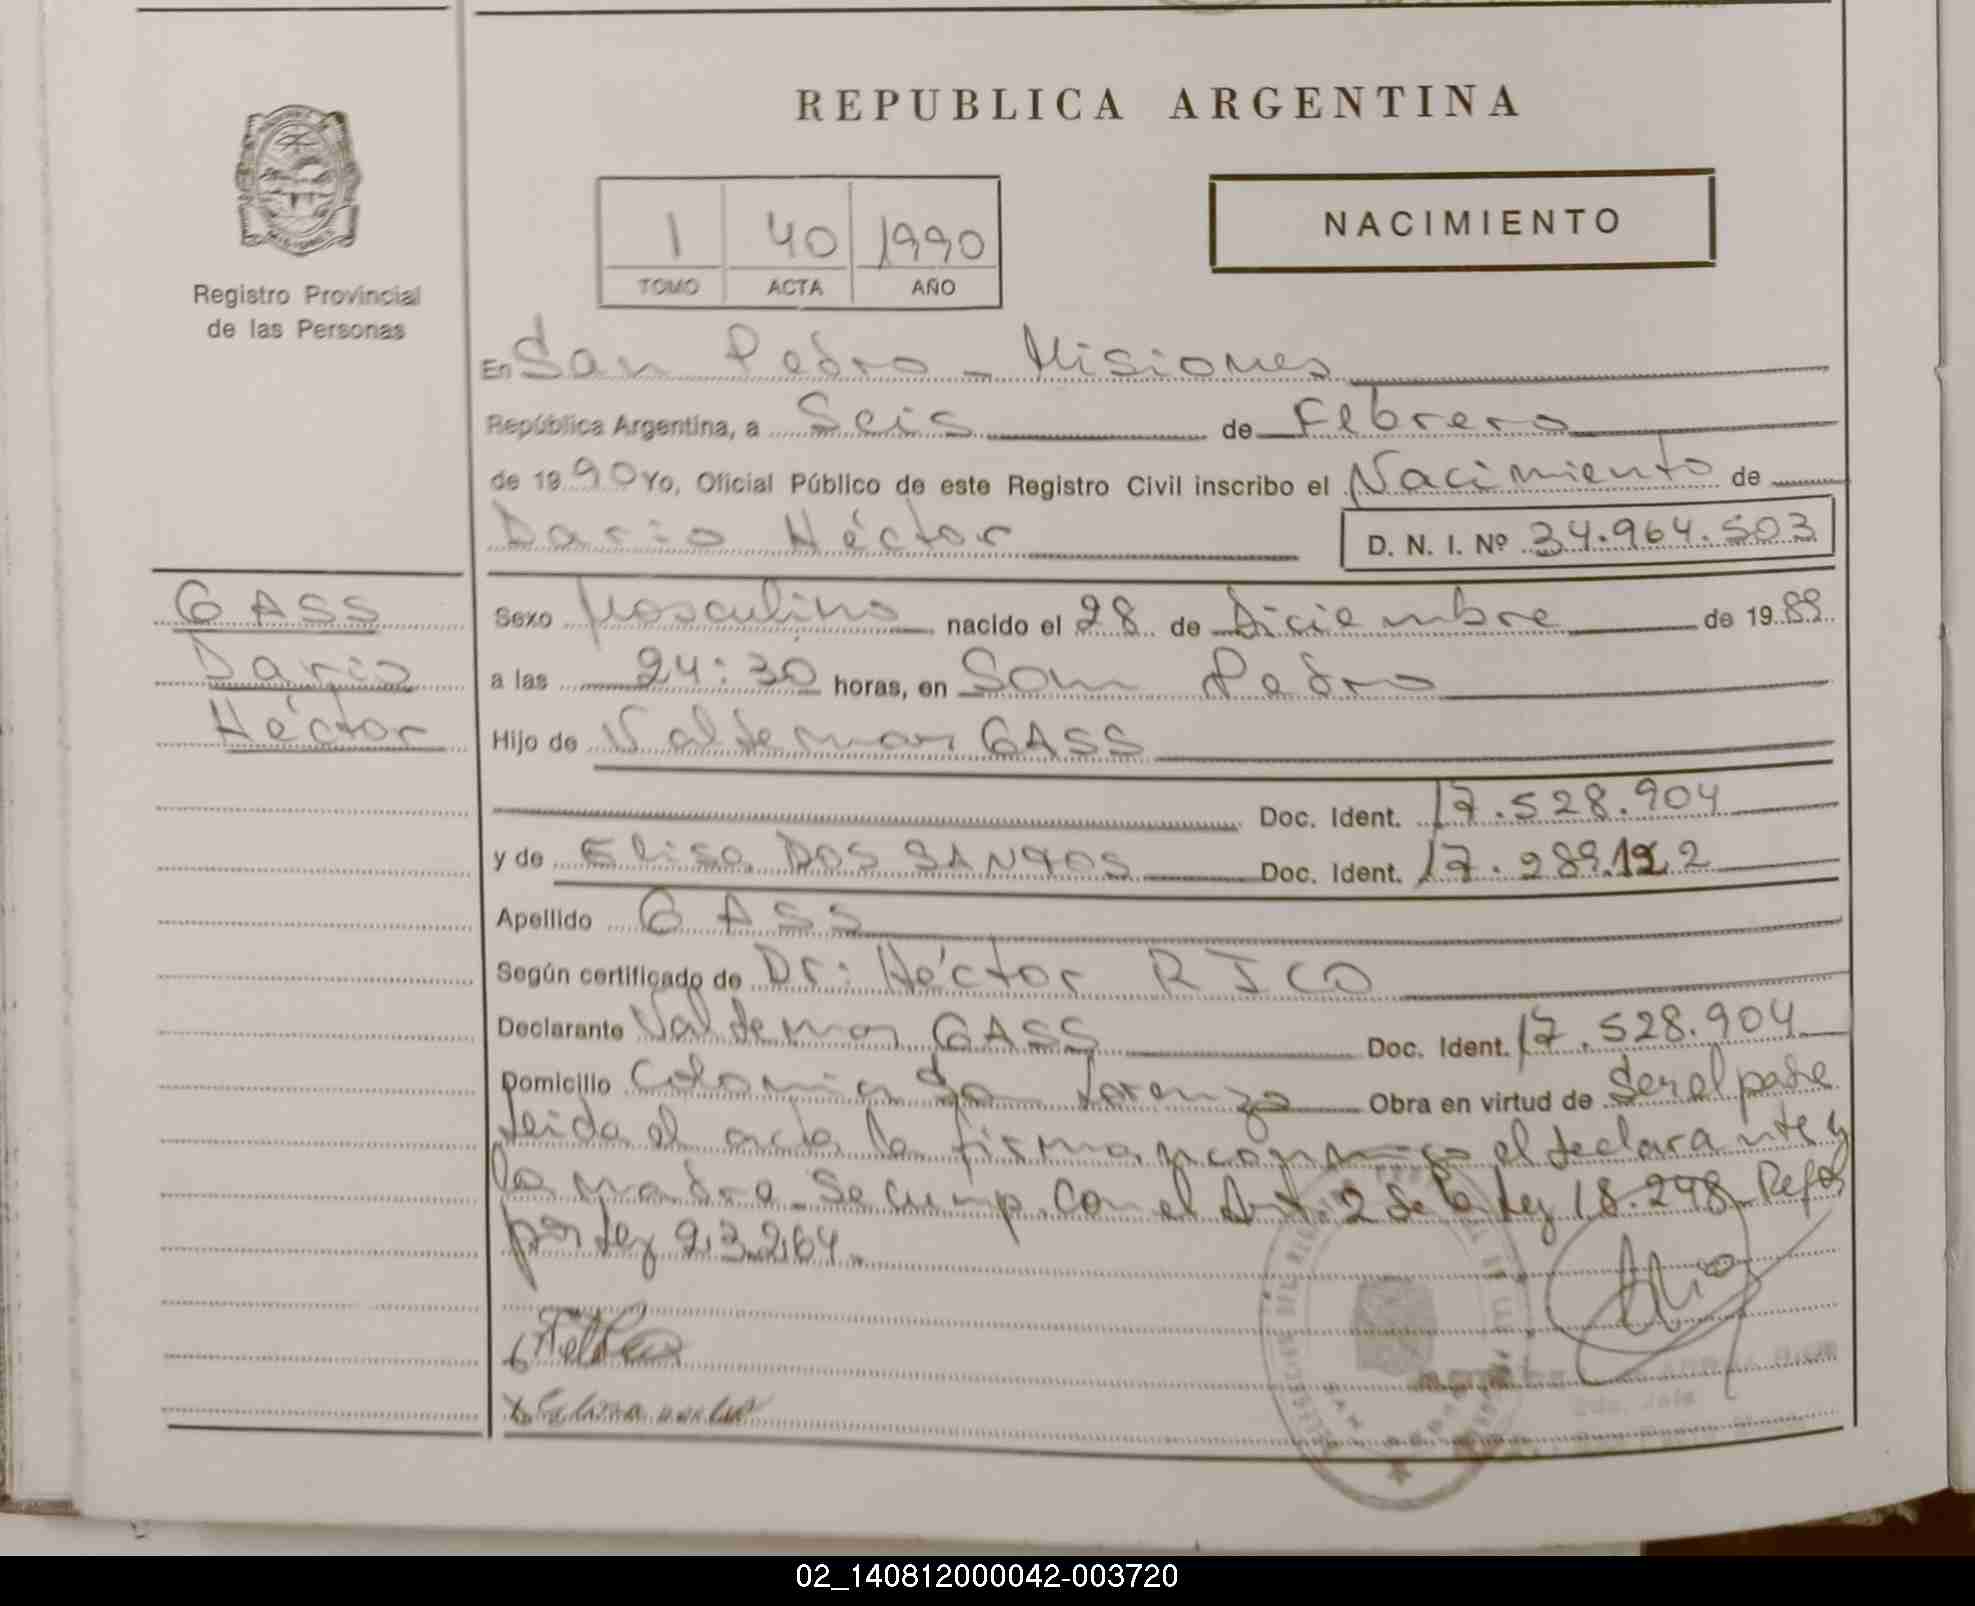 REPUBLICA ARGENTINA
NACIMIENTO
1 40 1990
TOMO ACTA AÑO
Registro Provincial
de las Personas
En San Pedro - Misiones
República Argentina, a Seis de Febrero
de 1990 Yo, Oficial Público de este Registro Civil inscribo el Nacimiento de
Dario Héctor D. N. I. Nº 34.964.503
GASS
Dario
Héctor
Sexo Masculino nacido el 28 de Diciembre de 1989
a las 24:30 horas, en San Pedro
Hijo de Valdemar GASS
Doc. Ident. 17.528.904
y de Elisa DOS SANTOS Doc. Ident. 17.289.122
Apellido GASS
Según certificado de Dr: Héctor RICO
Declarante Valdemar GASS Doc. Ident. 17.528.904
Domicilio Colonia San Lorenzo Obra en virtud de Ser el padre
leida el acta la firman conmigo el declarante y
la madre - Se cump. Con el Art. 2 de la Ley 18.248 - Refor
por Ley 23.264.
02_140812000042-003720